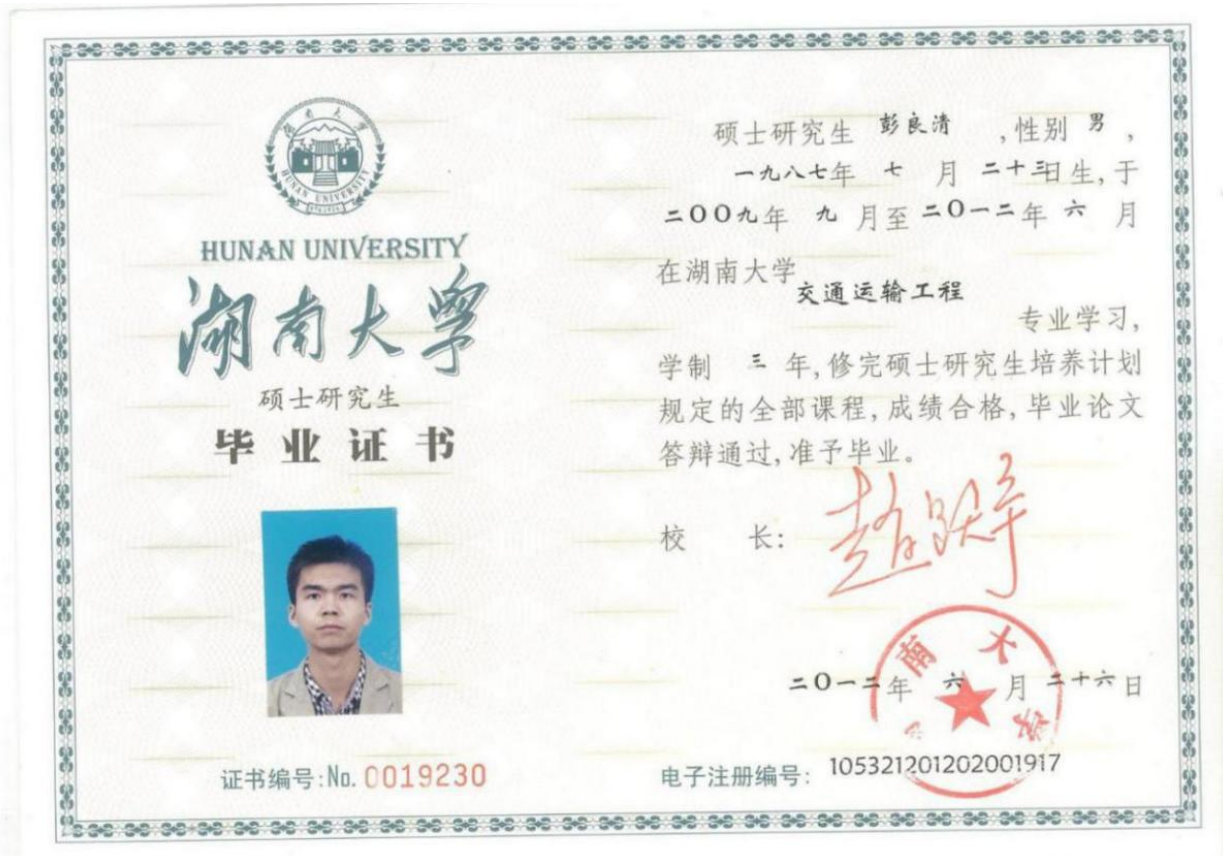 湖南大学
HUNAN UNIVERSITY
HUNAN UNIVERSITY
湖南大学
硕士研究生
毕业证书
证书编号:No. 0019230
硕士研究生 彭良清 ,性别 男 ,
一九八七年 七 月 二十三日生,于
二〇〇九年 九 月至二〇一二年 六 月
在湖南大学
交通运输工程
专业学习,
学制 三 年,修完硕士研究生培养计划
规定的全部课程,成绩合格,毕业论文
答辩通过,准予毕业。
校 长: 赵跃宇
二〇一二年 六 月 二十六日
南大学
电子注册编号: 105321201202001917